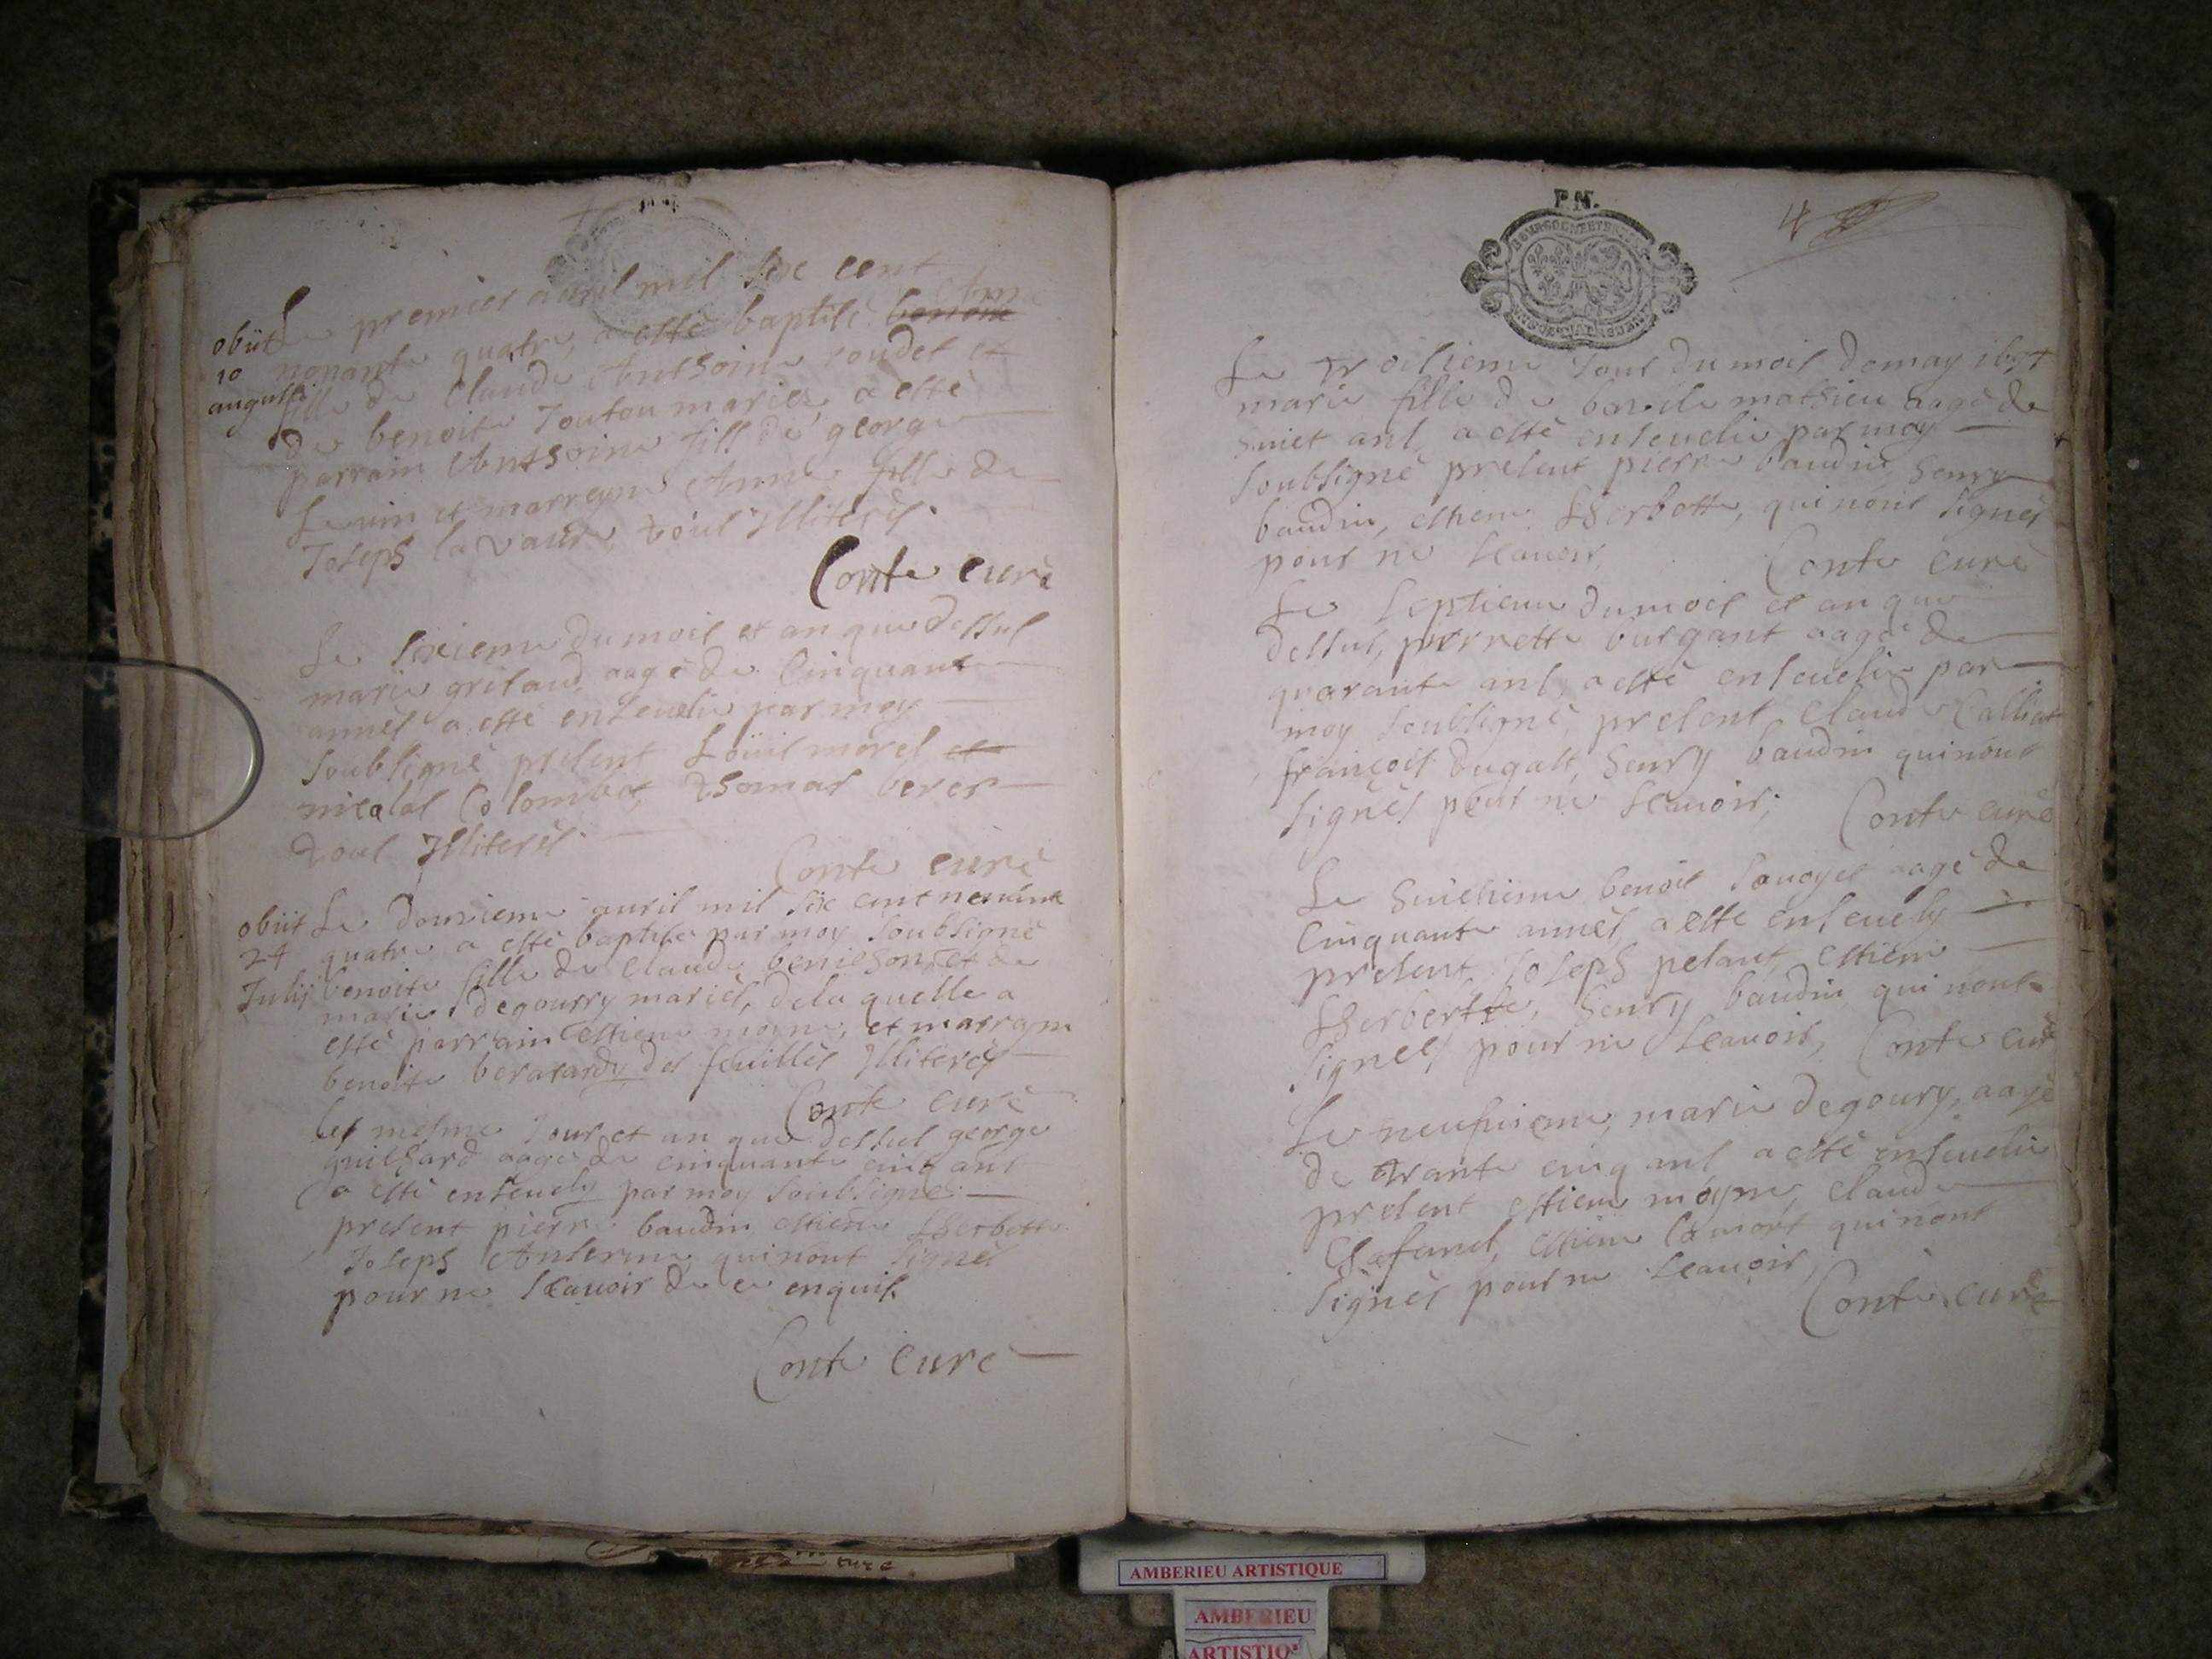 Le premier auril mil six cent
obiit nonante quatre, a esté baptisé benoite Anne
10 fille de Claude Anthoine roudet et
augusti de benoite Joutou mariez, a esté
parrain Anthoine fill de george
Leuin et marreyne Anne fille de
Joseph la vaure, tous Illiterés.
Conte curé
Le sixieme du mois et an que dessus
marie grilaud, aagé de Cinquante
annés a esté enseuelie par moy
soubsigné present Loüis morel et
nicolas Colombat, thomas berer
tous Illiterés.
Conte curé
obiit Le douzieme auril mil six cent nonante
24 quatre a esté baptisée par moy soubsigné
Julij benoite fille de Claude benichon, et de
marie degourry mariés, de la quelle a
esté parrain Estiene moyne, et marrayne
benoite berarardy des feuilles Illiterés
Conte curé
Les mesme Jour et an que dessus george
guichard aagé de cinquante cinq ans
a esté enseuely par moy soubsigné
present pierre baudin estiene therbotte
Joseph Anserme, qui nont signés
pour ne scauoir de ce enquis
Conte curé
P.N.
4
Le troisieme Jour du mois de may 1694
marie fille de bazile mathieu aagé de
huict ans, a esté enseuelie par moy
soubsigné present pierre baudin, henry
baudin, estiene therbotte, qui nont signés
pour ne scauoir, Conte curé
Le septieme du mois et an que
dessus, pernette burgant aagé de
quarante ans, a esté enseuelie par
moy soubsigné, present Claude Calliat
françois dugast, henry baudin qui nont
signés pour ne scauoir; Conte curé
Le huictieme benoit sauoyes aagé de
Cinquante annés, a esté enseuely
present, Joseph pelant, estiene
therbotte, henry baudin, qui nont
signés pour ne scauoir, Conte curé
Le neufuieme, marie degoury, aagé
de trante cinq ans, a esté enseuelie
present estiene moyne, Claude
Chafanel, estiene Camort qui nont
signés pour ne scauoir,
Conte curé
AMBERIEU ARTISTIQUE
AMBERIEU
ARTISTIQU